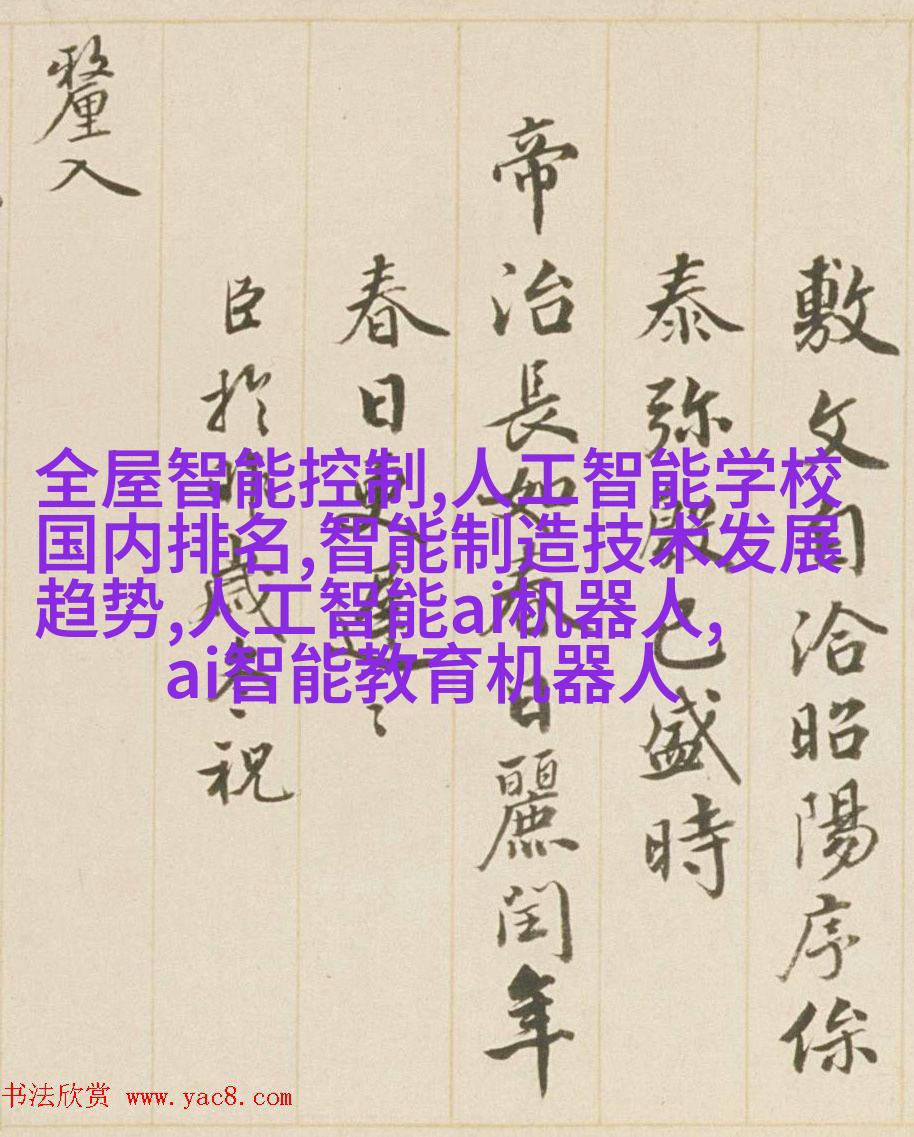 敷文洽昭陽序
泰弥殷已盛時
帝治長如春日麗閏年
春日更遲〻
臣於歲祝
釐入
全屋智能控制,人工智能学校
国内排名,智能制造技术发展
趋势,人工智能ai机器人,
ai智能教育机器人
书法欣赏 www.yac8.com